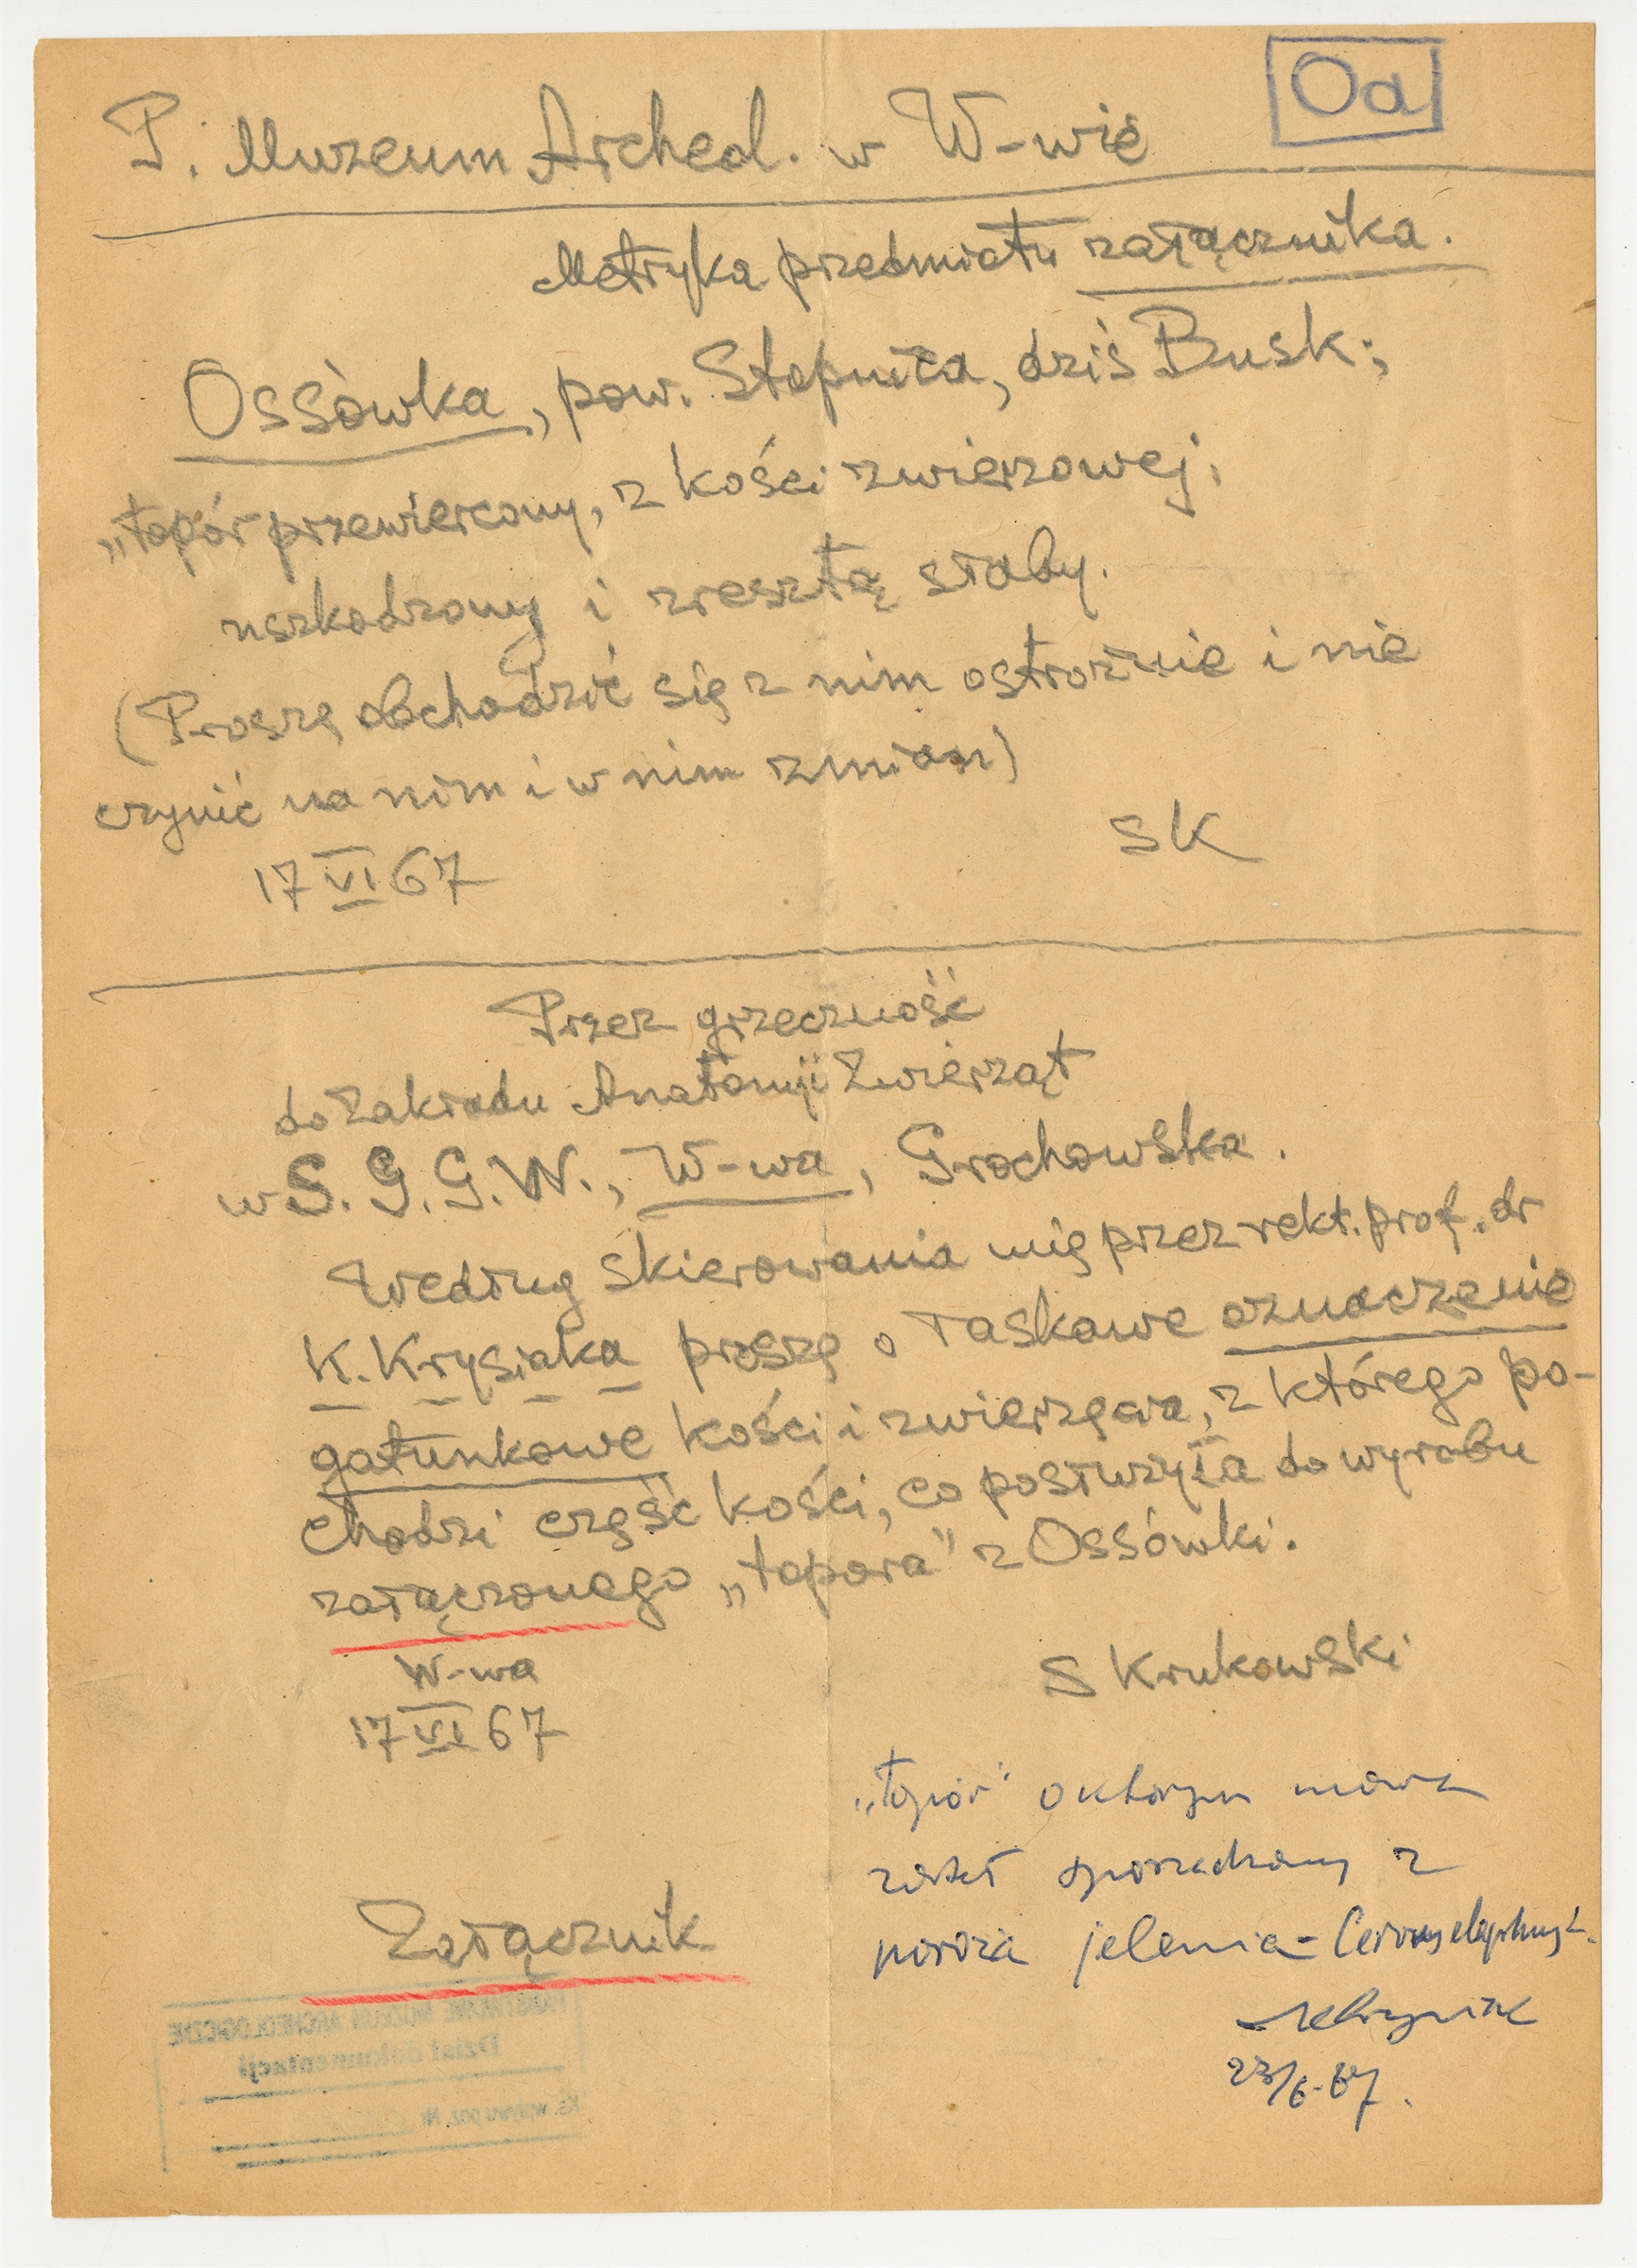 Od
P. Muzeum Archeol. w W-wie
Metryka przedmiotu załącznika.
Ossówka, pow. Stopnica, dziś Busk;
„topór przewiercony, z kości zwierzowej;
uszkodzony i zresztą słaby.
(Proszę obchodzić się z nim ostrożnie i nie
czynić na nim i w nim zmian)
SK
17 VI 67
Przez grzeczność
do Zakładu Anatomji Zwierząt
w S.G.G.W., W-wa, Grochowska.
Według skierowania mię przez rekt. prof. dr
K. Krysiaka proszę o łaskawe oznaczenie
gatunkowe kości i zwierzęcia, z którego po-
chodzi część kości, co posłużyła do wyrobu
załączonego „topora" z Ossówki.
S Krukowski
W-wa
17 VI 67
„topór" o którym mowa
został sporządzony z
poroża jelenia - Cervus elaphus L.
23/6-67.
Załącznik
PAŃSTWOWE MUZEUM ARCHEOLOGICZNE
Dział dokumentacji
Ks. wpływu poz. Nr.